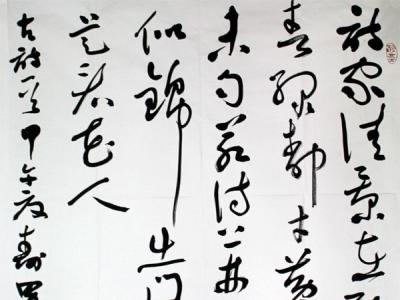 诗家清景在新
春绿柳才黄
未匀若待上林
似锦出门
是看花人
古诗一首甲午夏寿